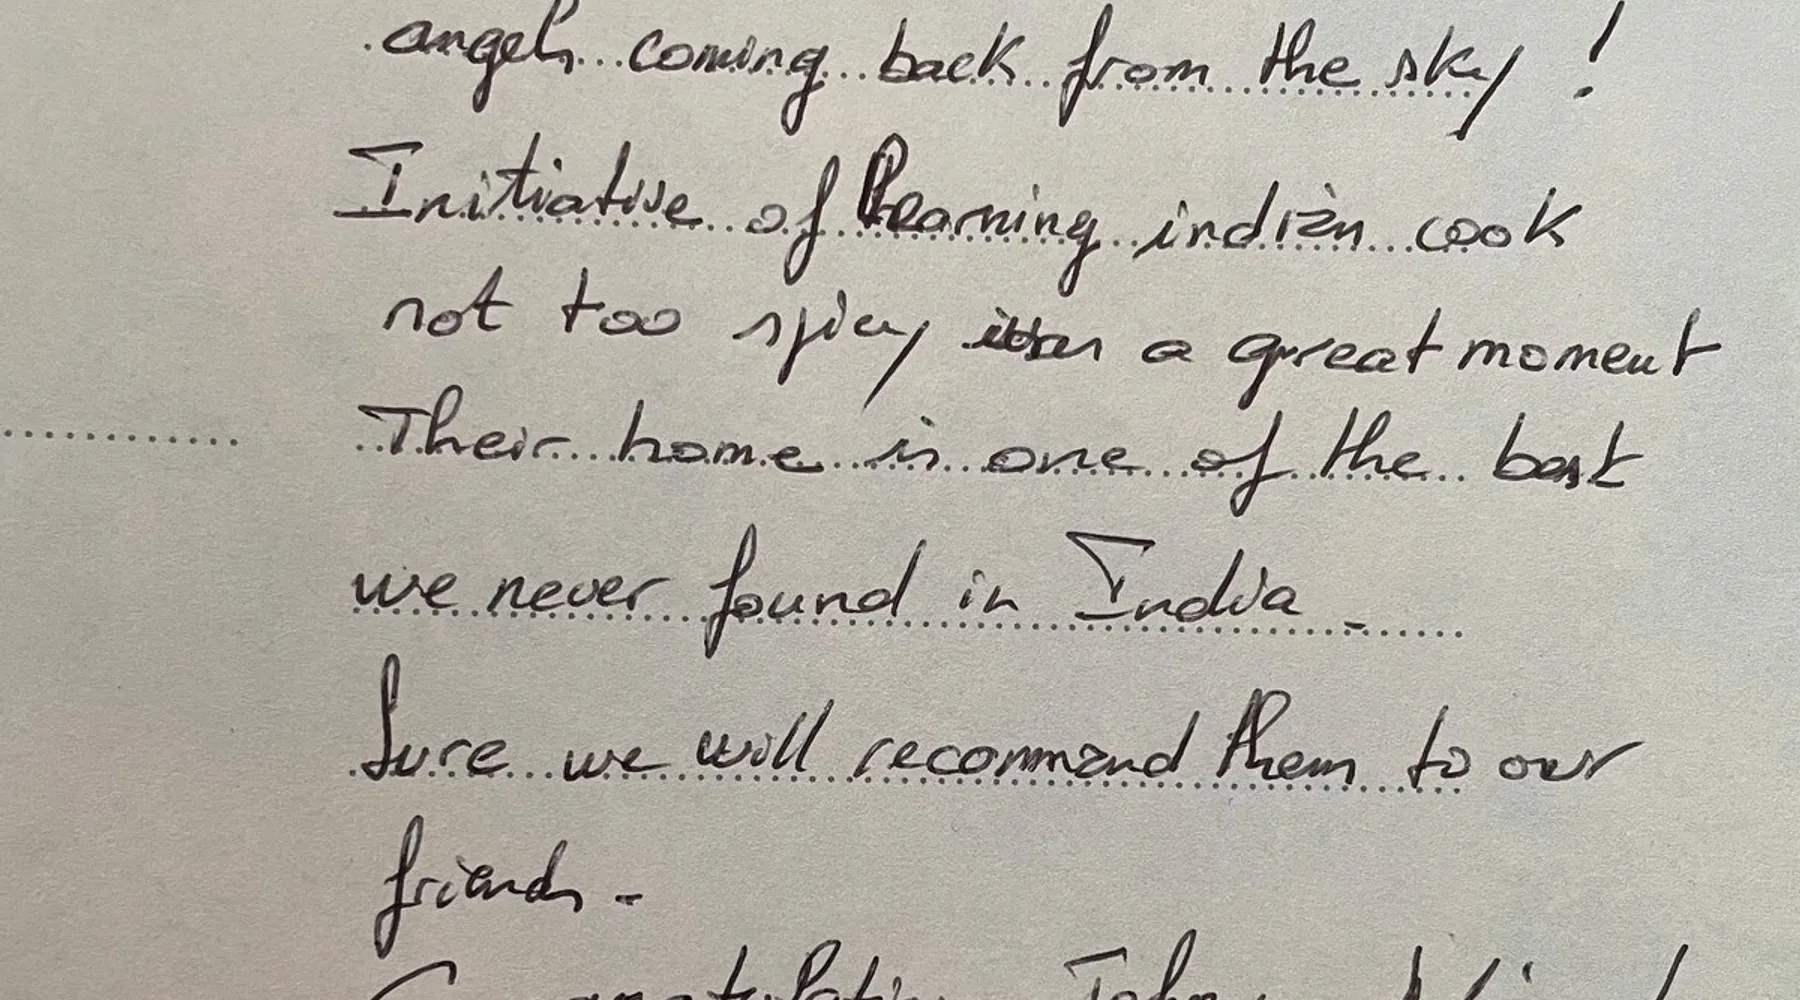 angels coming back from the sky !
Initiative of learning indian cook
not too spicy a great moment
Their home is one of the best
we never found in India -
Sure we will recommend them to our
friends -